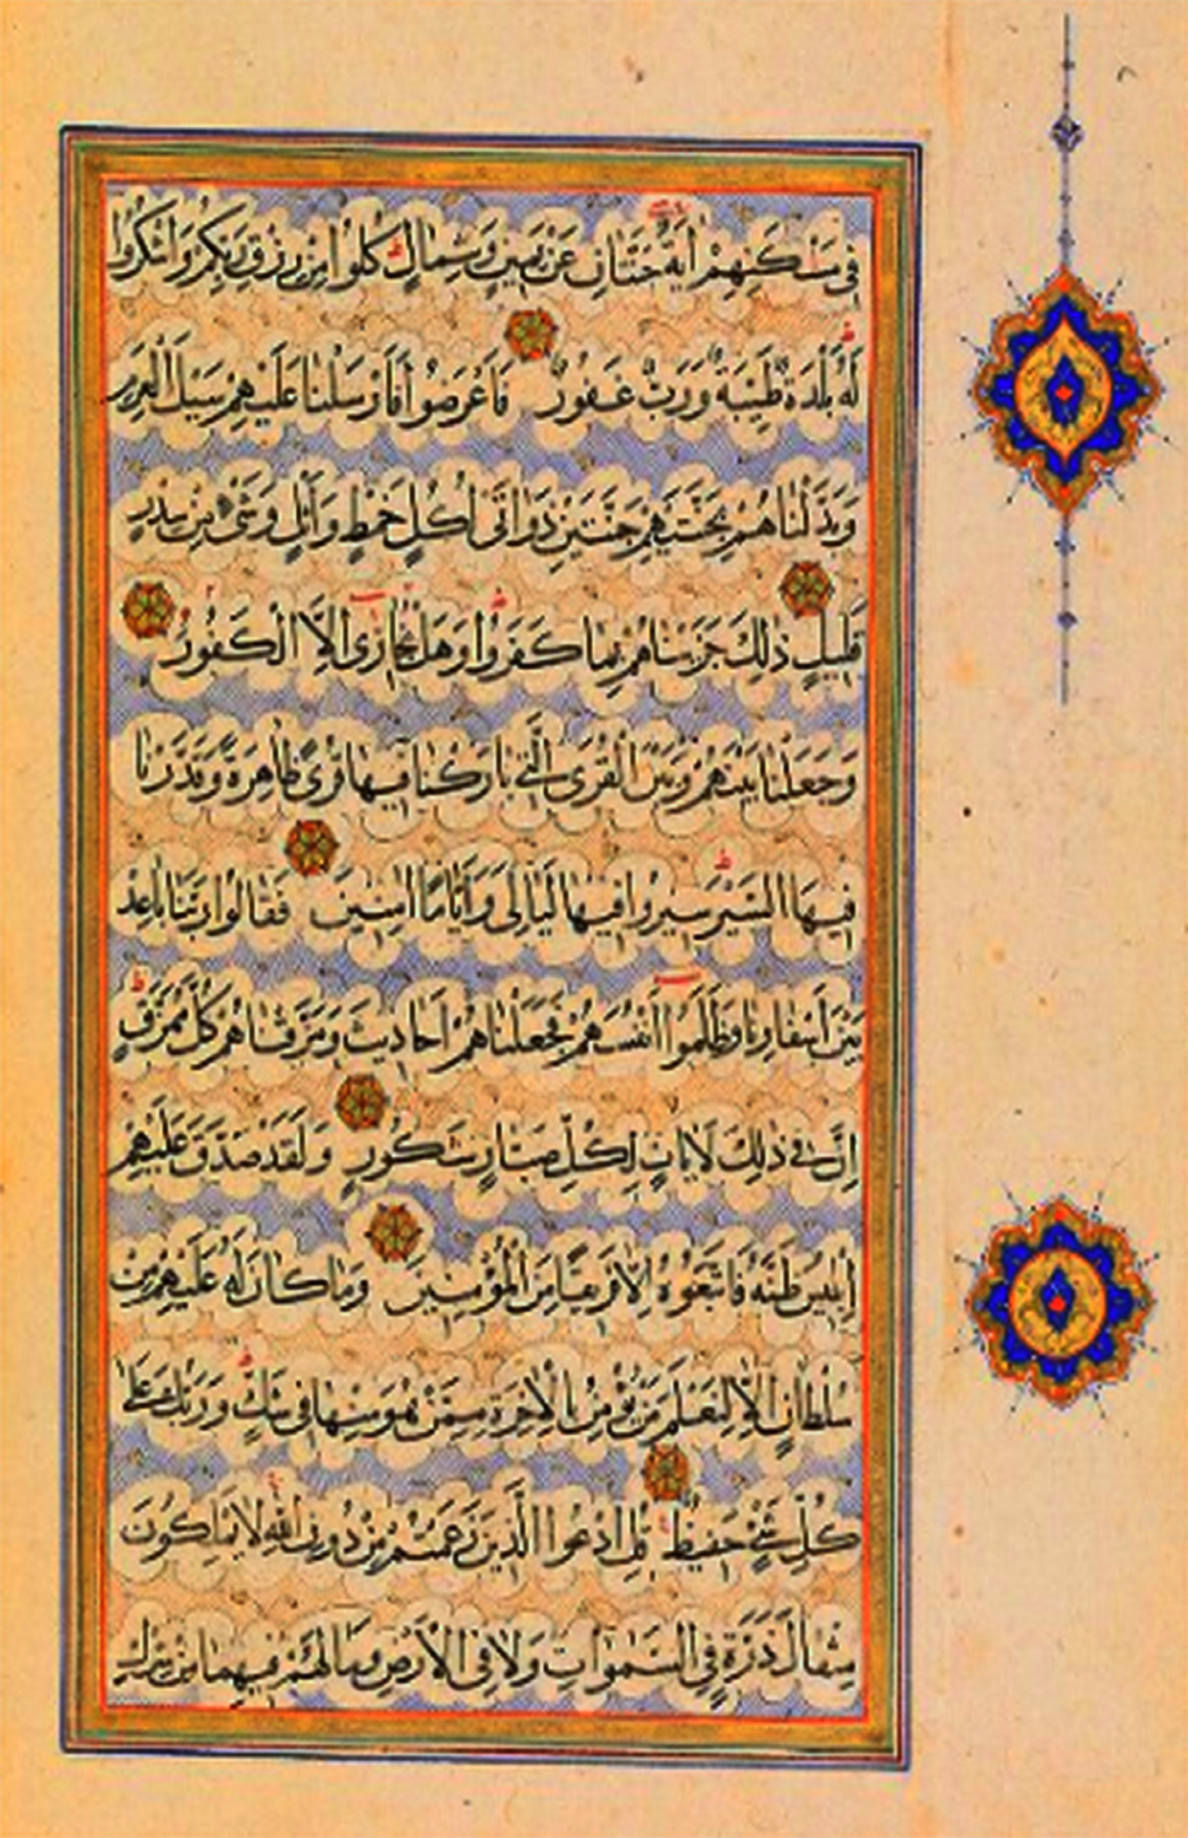 فِي مَسْكَنِهِمْ اٰيَةٌ جَنَّتَانِ عَنْ يَمِينٍ وَشِمَالٍ كُلُوا مِنْ رِزْقِ رَبِّكُمْ وَاشْكُرُوا
لَهُ بَلْدَةٌ طَيِّبَةٌ وَرَبٌّ غَفُورٌ فَاَعْرَضُوا فَاَرْسَلْنَا عَلَيْهِمْ سَيْلَ الْعَرِمِ
وَبَدَّلْنَاهُمْ بِجَنَّتَيْهِمْ جَنَّتَيْنِ ذَوَاتَىْ اُكُلٍ خَمْطٍ وَاَثْلٍ وَشَىْءٍ مِنْ سِدْرٍ
قَلِيلٍ ذٰلِكَ جَزَيْنَاهُمْ بِمَا كَفَرُوا وَهَلْ يُجَازٰى اِلَّا الْكَفُورُ
وَجَعَلْنَا بَيْنَهُمْ وَبَيْنَ الْقُرَى الَّتِى بَارَكْنَا فِيهَا قُرًى ظَاهِرَةً وَقَدَّرْنَا
فِيهَا السَّيْرَ سِيرُوا فِيهَا لَيَالِىَ وَاَيَّامًا اٰمِنِينَ فَقَالُوا رَبَّنَا بَاعِدْ
بَيْنَ اَسْفَارِنَا وَظَلَمُوا اَنْفُسَهُمْ فَجَعَلْنَاهُمْ اَحَادِيثَ وَمَزَّقْنَاهُمْ كُلَّ مُمَزَّقٍ
اِنَّ فِى ذٰلِكَ لَاٰيَاتٍ لِكُلِّ صَبَّارٍ شَكُورٍ وَلَقَدْ صَدَّقَ عَلَيْهِمْ
اِبْلِيسُ ظَنَّهُ فَاتَّبَعُوهُ اِلَّا فَرِيقًا مِنَ الْمُؤْمِنِينَ وَمَا كَانَ لَهُ عَلَيْهِمْ مِنْ
سُلْطَانٍ اِلَّا لِنَعْلَمَ مَنْ يُؤْمِنُ بِالْاٰخِرَةِ مِمَّنْ هُوَ مِنْهَا فِى شَكٍّ وَرَبُّكَ عَلٰى
كُلِّ شَىْءٍ حَفِيظٌ قُلِ ادْعُوا الَّذِينَ زَعَمْتُمْ مِنْ دُونِ اللّٰهِ لَا يَمْلِكُونَ
مِثْقَالَ ذَرَّةٍ فِى السَّمٰوَاتِ وَلَا فِى الْاَرْضِ وَمَا لَهُمْ فِيهِمَا مِنْ شِرْكٍ